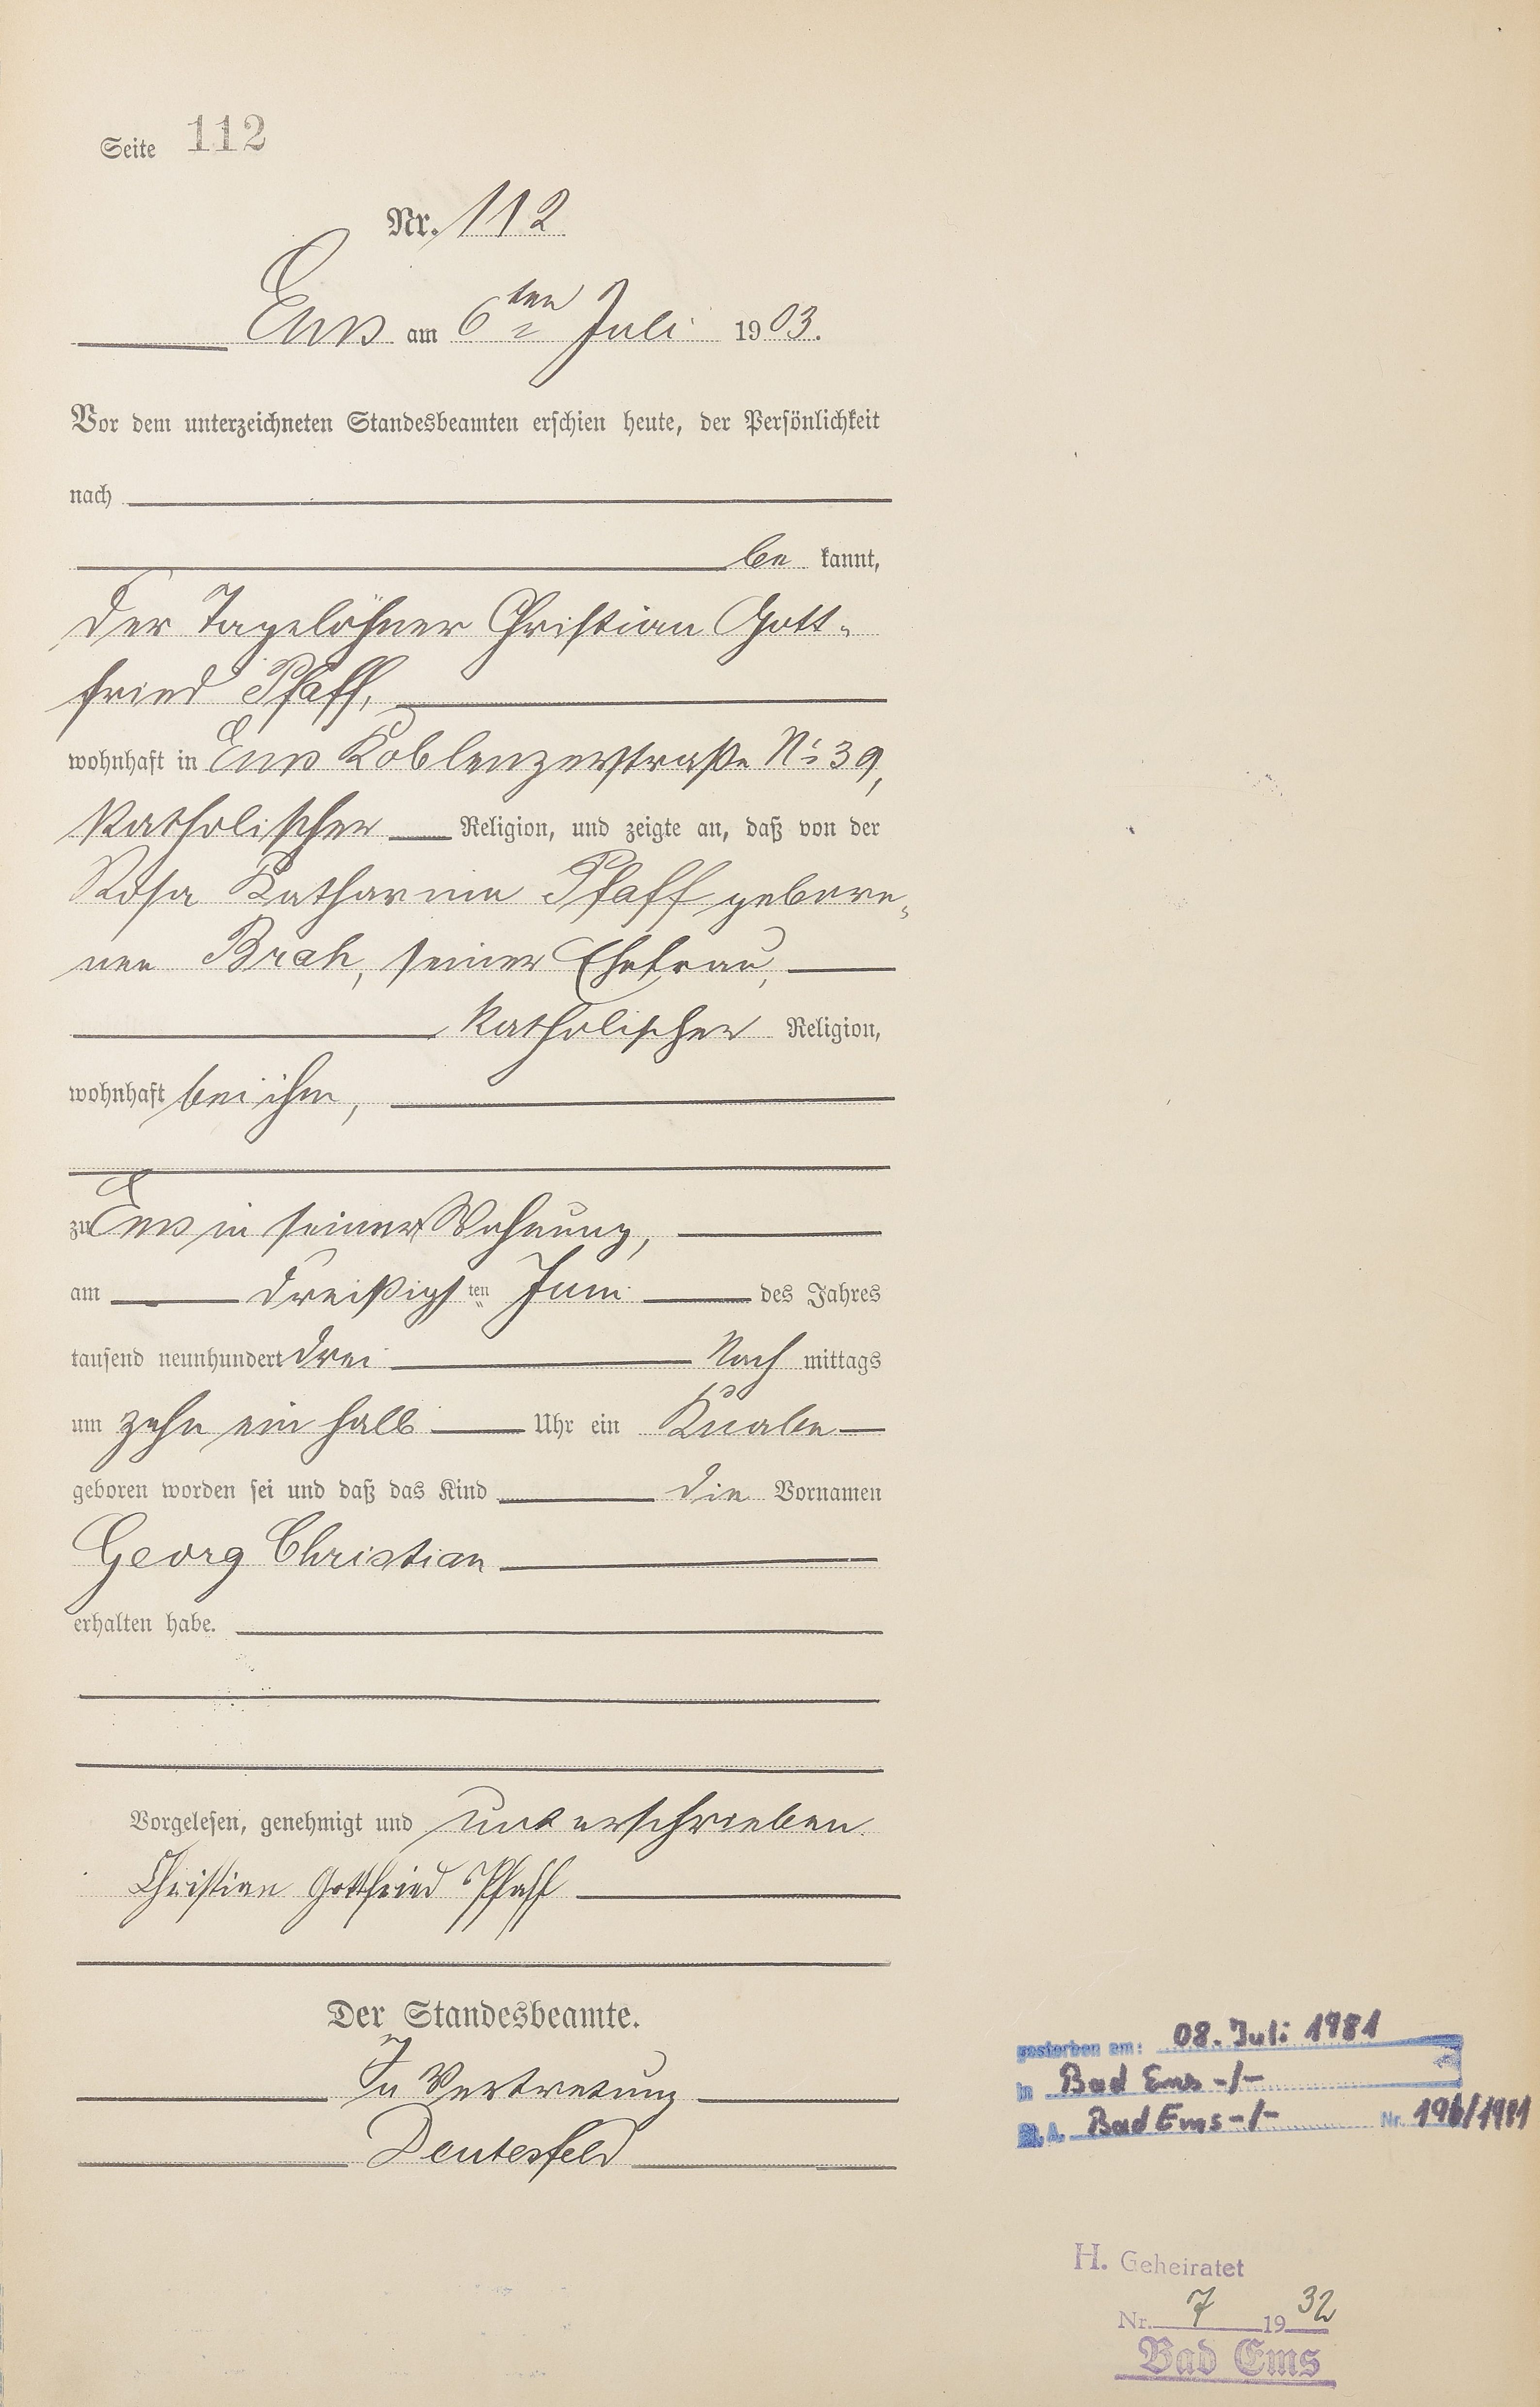 Seite 112
Nr. 112
Ems am 6ten Juli 1903.
Vor dem unterzeichneten Standesbeamten erschien heute, der Persönlichkeit
nach
be kannt,
der Tagelöhner Christian Gott-
fried Pfaff,
wohnhaft in Ems Koblenzerstraße No 39,
katholischer Religion, und zeigte an, daß von der
Rosa Katharina Pfaff gebore-
nen Brah, seiner Ehefrau,
katholischer Religion,
wohnhaft bei ihm,
zu Ems in seiner Wohnung,
am dreißigsten Juni des Jahres
tausend neunhundert drei Nach mittags
um zehn ein halb Uhr ein Knabe
geboren worden sei und daß das Kind die Vornamen
Georg Christian
erhalten habe.
Vorgelesen, genehmigt und unterschrieben
Christian Gottfried Pfaff
Der Standesbeamte.
In Vertretung
Deutesfeld
gestorben am: 08. Juli 1981
in Bad Ems -/-
St. A. Bad Ems -/- Nr. 196/1981
H. Geheiratet
Nr. 7 1932
Bad Ems